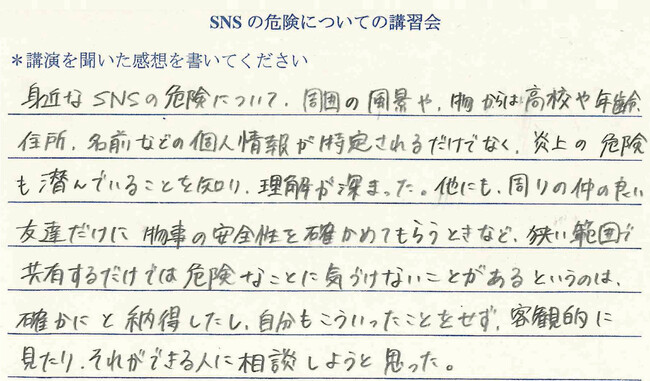 SNSの危険についての講習会
＊講演を聞いた感想を書いてください
身近なSNSの危険について、周囲の風景や、物からは高校や年齢、
住所、名前などの個人情報が特定されるだけでなく、炎上の危険
も潜んでいることを知り、理解が深まった。他にも、周りの仲の良い
友達だけに物事の安全性を確かめてもらうときなど、狭い範囲で
共有するだけでは危険なことに気づけないことがあるというのは、
確かにと納得したし、自分もこういったことをせず、客観的に
見たり、それができる人に相談しようと思った。